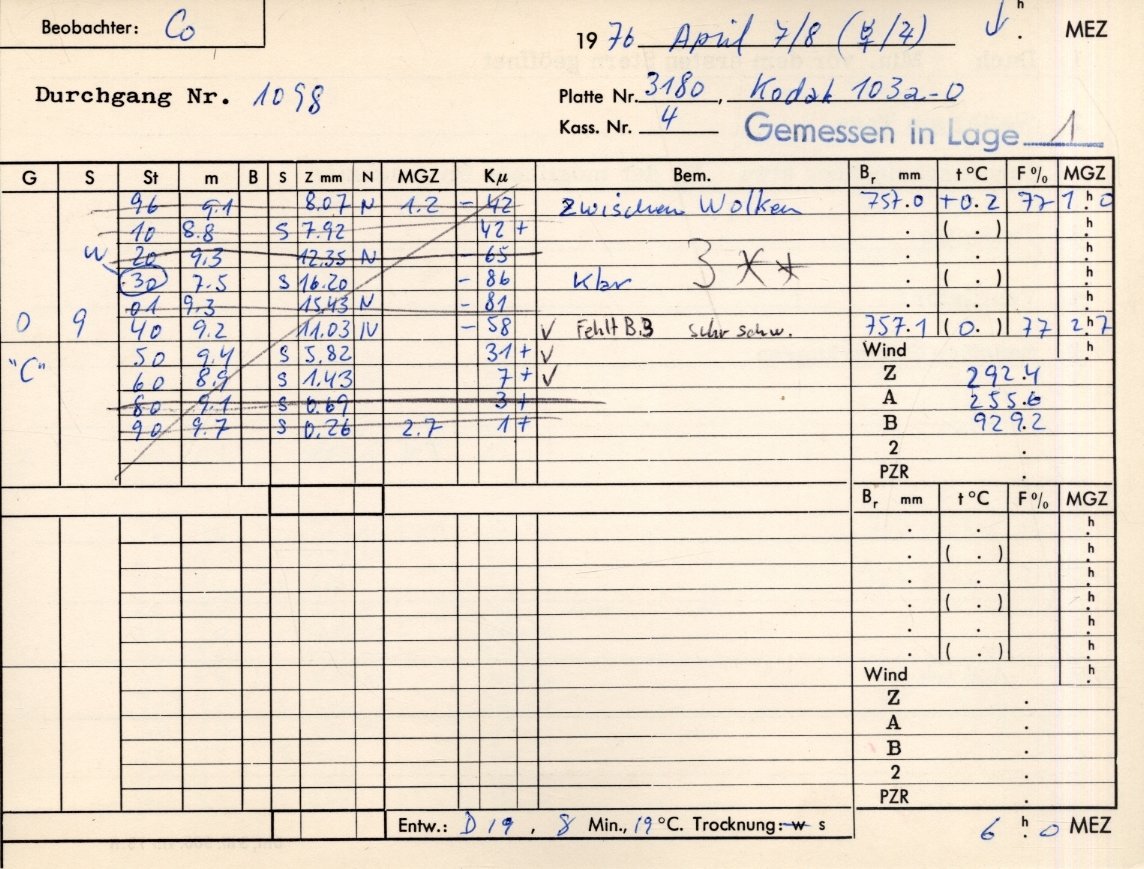 Beobachter: Co
1976 April 7/8 (☿/♃) h . MEZ
Durchgang Nr. 1098
Platte Nr. 3180, Kodak 103a-O
Kass. Nr. 4
Gemessen in Lage 1
G S St m B S Z mm N MGZ Kμ Bem. Br mm t°C F% MGZ
96 9.1 8.07 N 1.2 - 42 zwischen Wolken 757.0 +0.2 77 1.h0
10 8.8 S 7.92 42 + . ( . ) h
W 20 9.3 12.35 N - 65 . . h
30 7.5 S 16.20 - 86 Klar 3 ** . ( . ) h
01 9.3 15.43 N - 81 . . h
0 9 40 9.2 11.03 N - 58 ✓ Fehlt B.3 sehr schw. 757.1 (0. ) 77 2.h7
"C" 50 9.4 S 5.82 31 + ✓ Wind h
60 8.9 S 1.43 7 + ✓ Z 292.4
80 9.1 S 0.69 3 + A 255.6
90 9.7 S 0.26 2.7 1 + B 929.2
2 .
PZR .
Br mm t°C F% MGZ
. . h
. ( . ) h
. . h
. ( . ) h
. . h
. ( . ) h
Wind h
Z .
A .
B .
2 .
PZR .
Entw.: D 19, 8 Min., 19 °C. Trocknung: w s
6 h. 0 MEZ